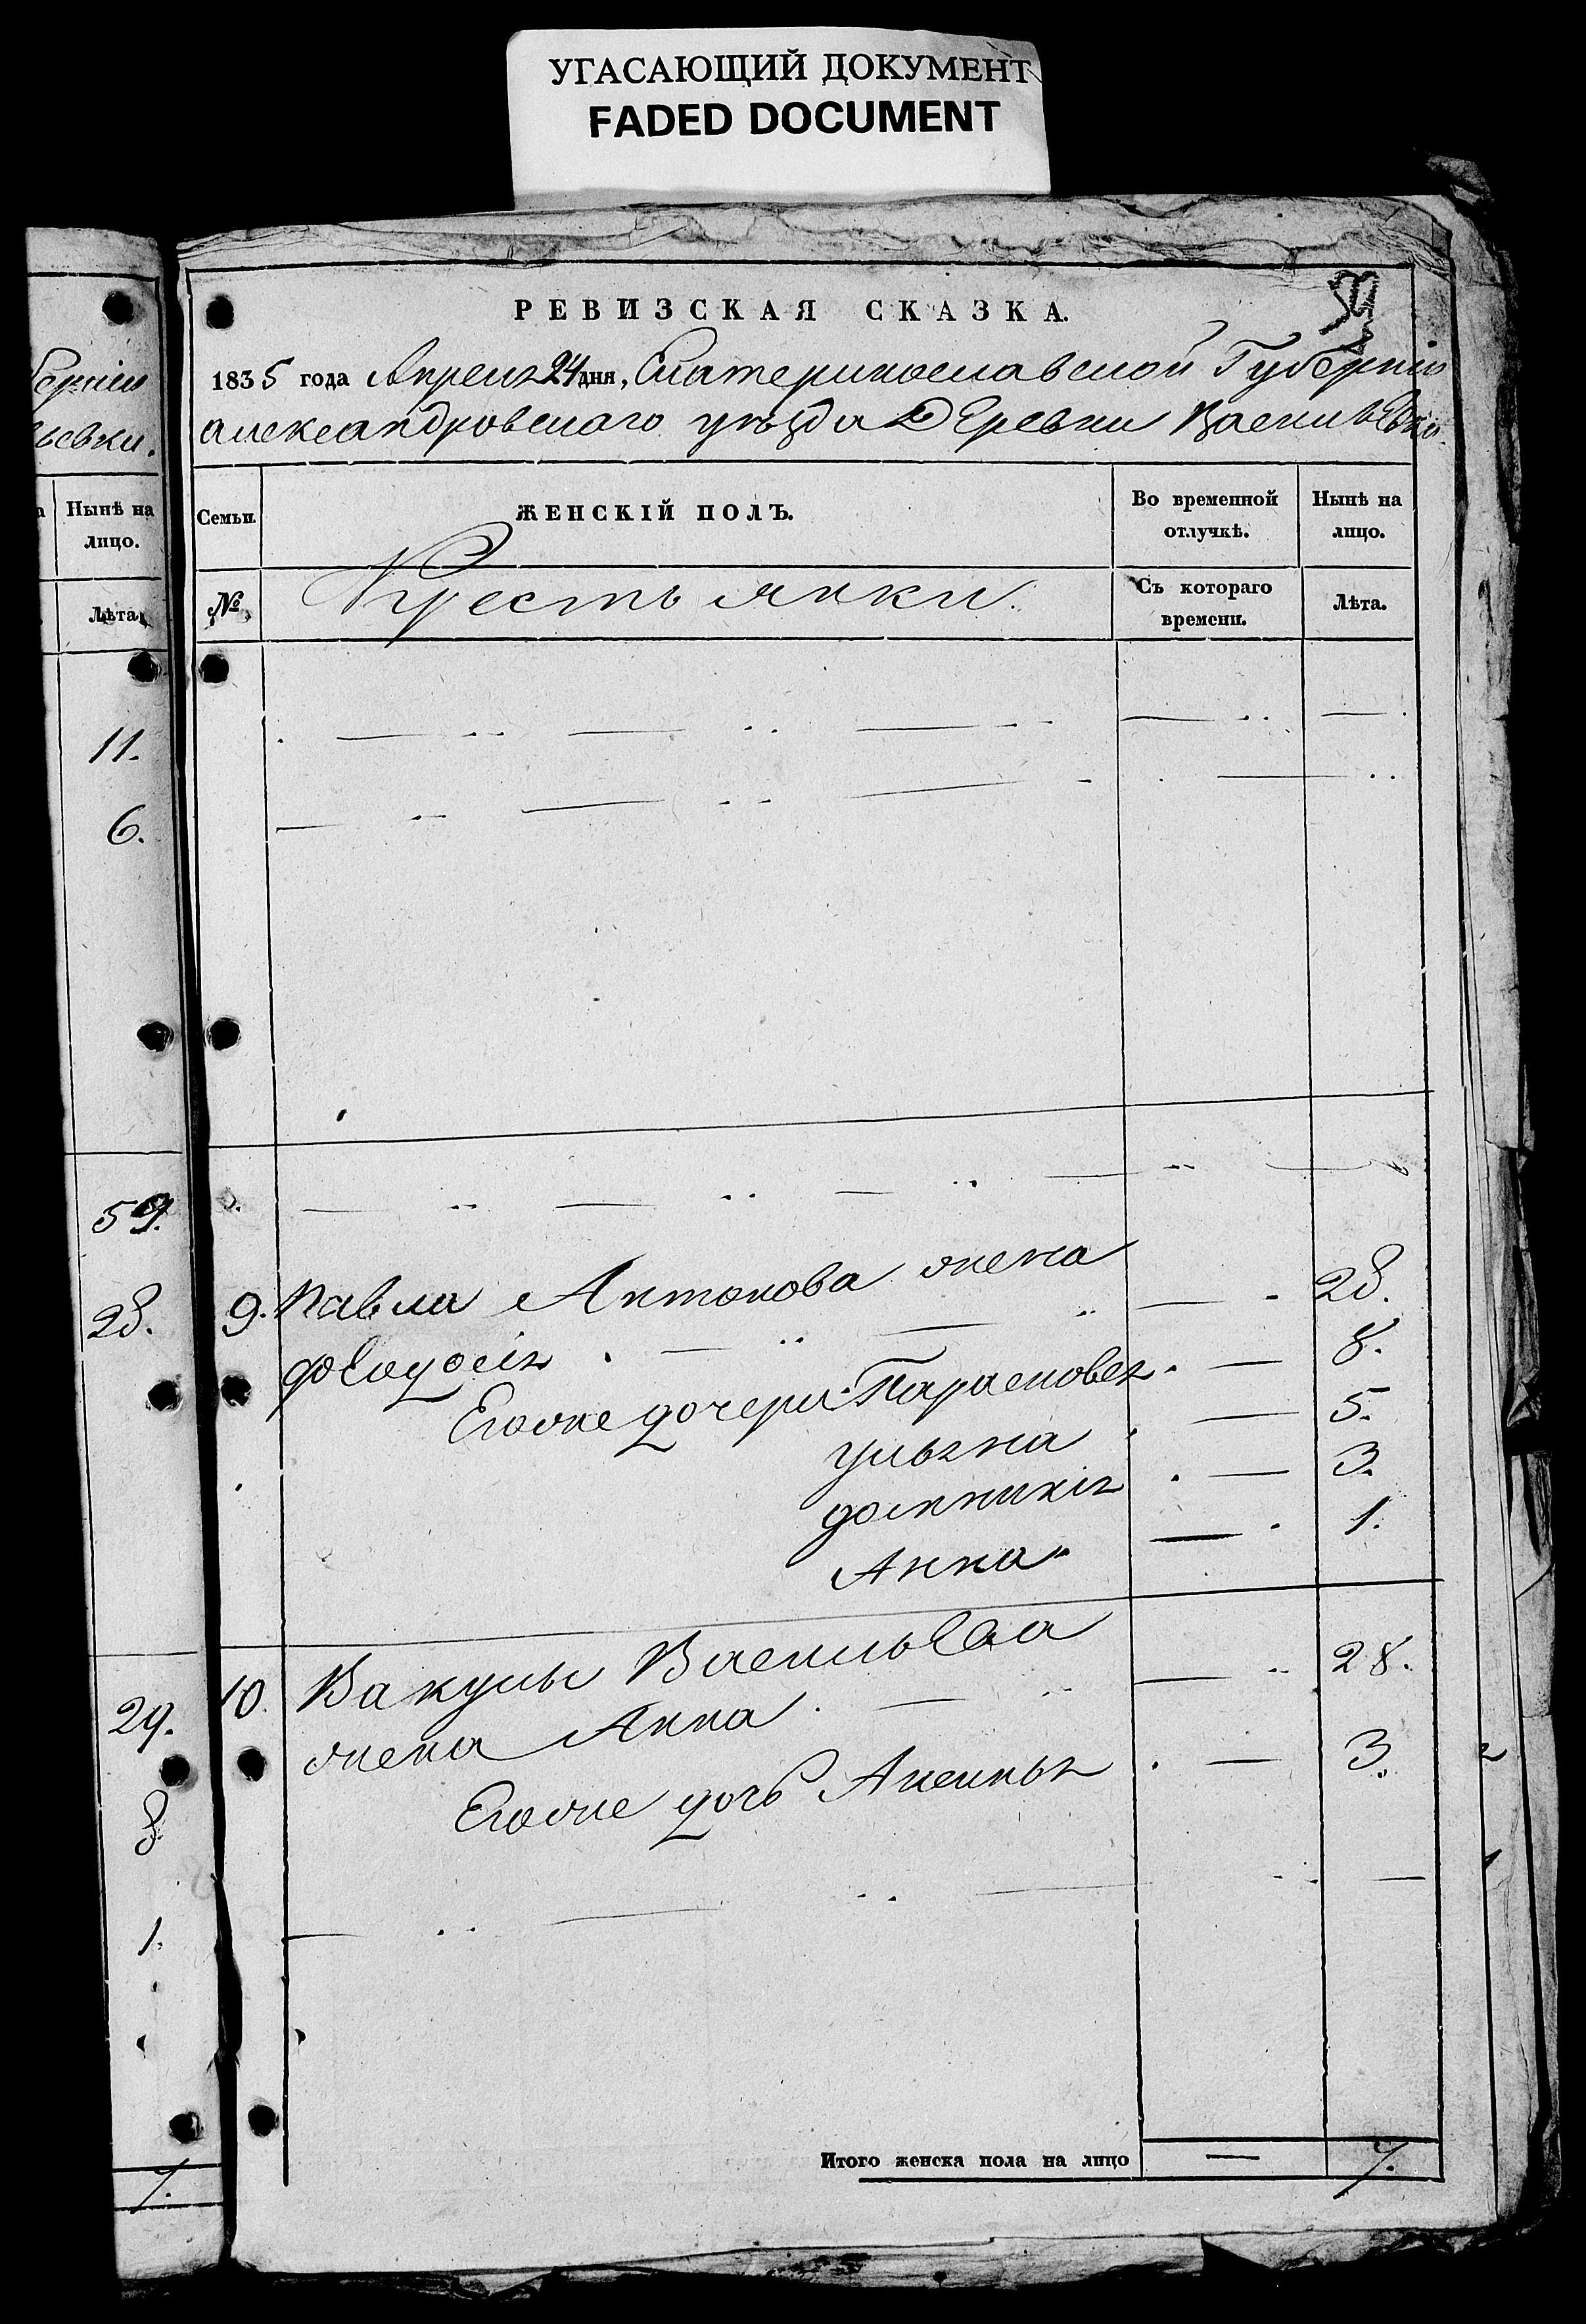 УГАСАЮЩИЙ ДОКУМЕНТ
FADED DOCUMENT
берніи
ьевки.
Нынѣ на
лицо.
Лѣта.
11.
6.
59.
28.
29.
8
1.
7.
РЕВИЗСКАЯ СКАЗКА.
1835 года Апреля 24 дня, Екатеринославской Губерніи
александровскаго уѣзда Деревни Васильевки.
Семьи. ЖЕНСКІЙ ПОЛЪ. Во временной отлучкѣ. Нынѣ на лицо.
№ Крестьянки. Съ котораго времени. Лѣта.
9. Павла Антонова жена
феодосія 28.
Егоже дочери Парасковея 8.
ульяна 5.
домникія 3.
Анна 1.
10. Вакулы Васильева
жена Анна 28.
Егоже дочь Аксинья 3.
Итого женска пола на лицо — 7.